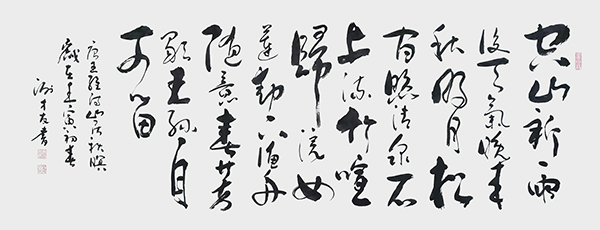 空山新雨
後天氣晚來
秋明月松
間照清泉石
上流竹喧
歸浣女
蓮動下漁舟
隨意春芳
歇王孫自
可留
唐王維詩山居秋暝
歲在壬寅初春
才友書